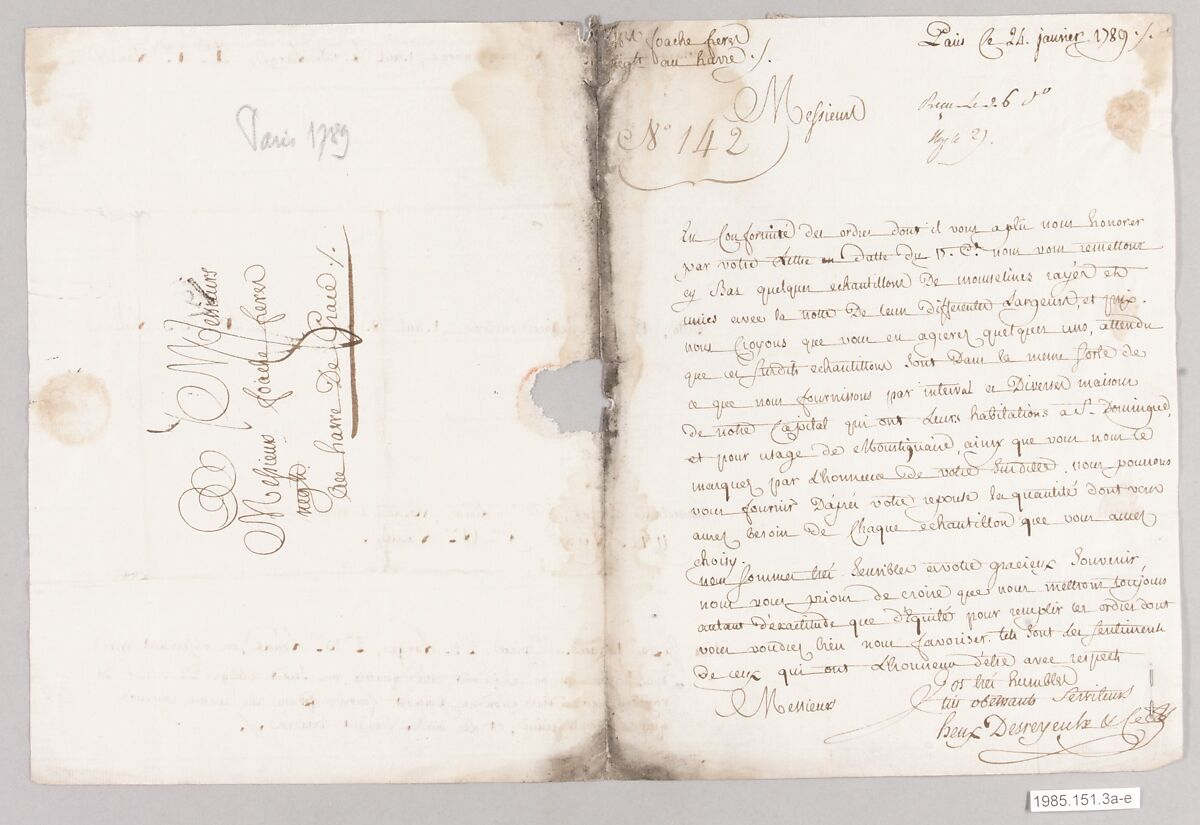 Paris 1789
Messieurs
Messieurs foache freres
negts
Au havre De Grace ./.
Mrs foache freres
negts au havre ./.
Paris Ce 24. janvier 1789 ./.
Messieurs
No 142
Recu Le 26 do
En Conformité des ordres dont il vous a plu nous honorer
par votre Lettre en datte du 17. Ct. nous vous remettons
cy Bas quelques echantillons De mousselines rayés et
unies avec la notte De leurs differentes Largeurs, et prix.
nous Croyons que vous en agrerez quelques uns, attendu
que ces susdits echantillons sont Dans la meme sorte de
ce que nous fournissons par interval a Diverses maisons
de notre Capital qui ont Leurs habitations a St. Domingue,
et pour usage de Moustiquaire, ainsy que vous nous le
marquez par L'honneur de votre susditte. nous pourrons
vous fournir D'aprés votre reponse la quantité dont vous
aurez Besoin de Chaque echantillon que vous aurez
choisy.
nous sommes trés sensibles a votre gracieux souvenir,
nous vous prions de croire que nous mettrons toujours
autant d'exactitude que d'Equité pour remplir les ordres dont
vous voudrez bien nous favoriser. tels sont les sentiments
De ceux qui ont L'honneur d'etre avec respect
Messieurs
Vos trés humbles
trés obeissants Serviteurs
heux Desreyeulx & Ce
1985.151.3a-e